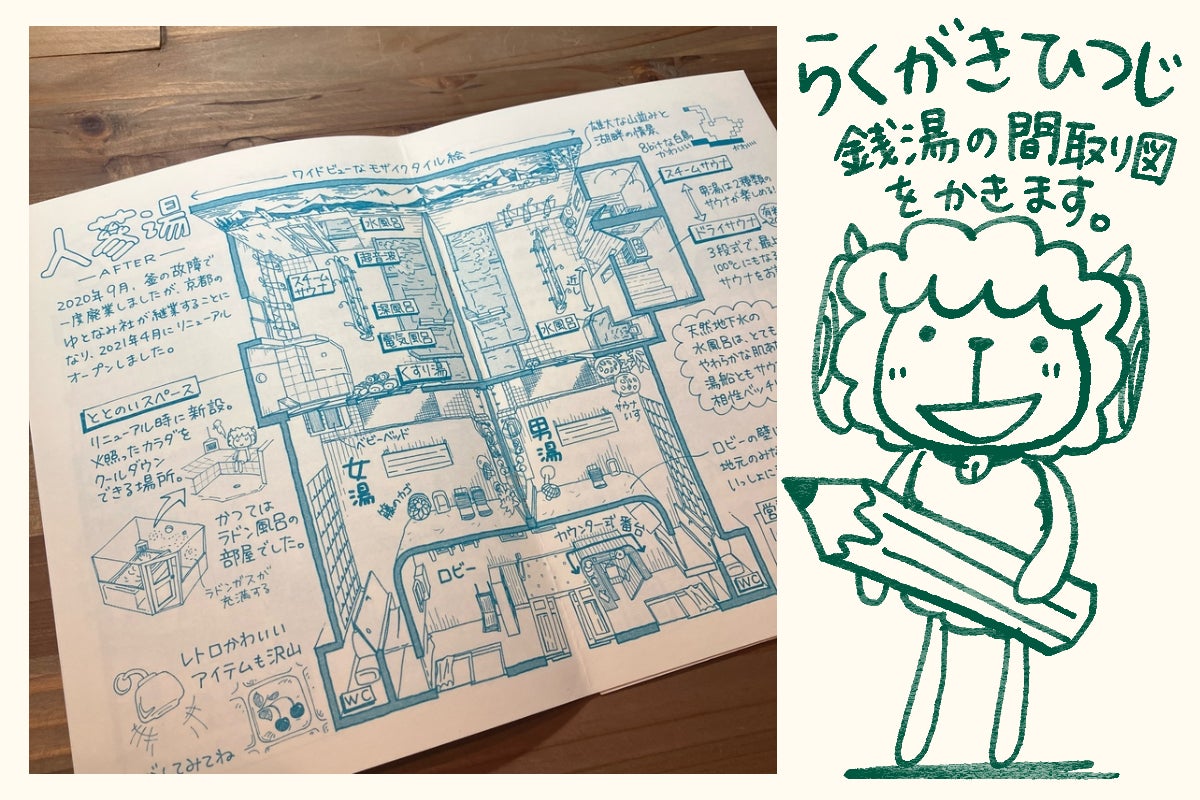 らくがきひつじ
銭湯の間取り図
をかきます。
人蔘湯
AFTER
2020年9月、釜の故障で
一度廃業しましたが、京都の
ゆとなみ社が継業することに
なり、2021年4月にリニューアル
オープンしました。
ワイドビューなモザイクタイル絵
雄大な山並みと
湖畔の情景
8bitな白鳥
かわいい
スチームサウナ
男湯は2種類の
サウナが楽しめる
ドライサウナ
3段式で、最上
100℃にもなる
サウナをお
水風呂
超音波
スチーム
サウナ
深風呂
電気風呂
くすり湯
近い
水風呂
天然地下水の
水風呂は、とても
やわらかな肌
湯船ともサウ
相性バッチリ
サウナ
いす
ととのいスペース
リニューアル時に新設。
火照ったカラダを
クールダウン
できる場所。
かつては
ラドン風呂の
部屋でした。
ラドンガスが
充満する
ベビーベッド
女湯
籐のカゴ
男湯
ロビーの壁
地元のみな
いっしょに
ロビー
カウンター式番台
WC
WC
レトロかわいい
アイテムも沢山
してみてね